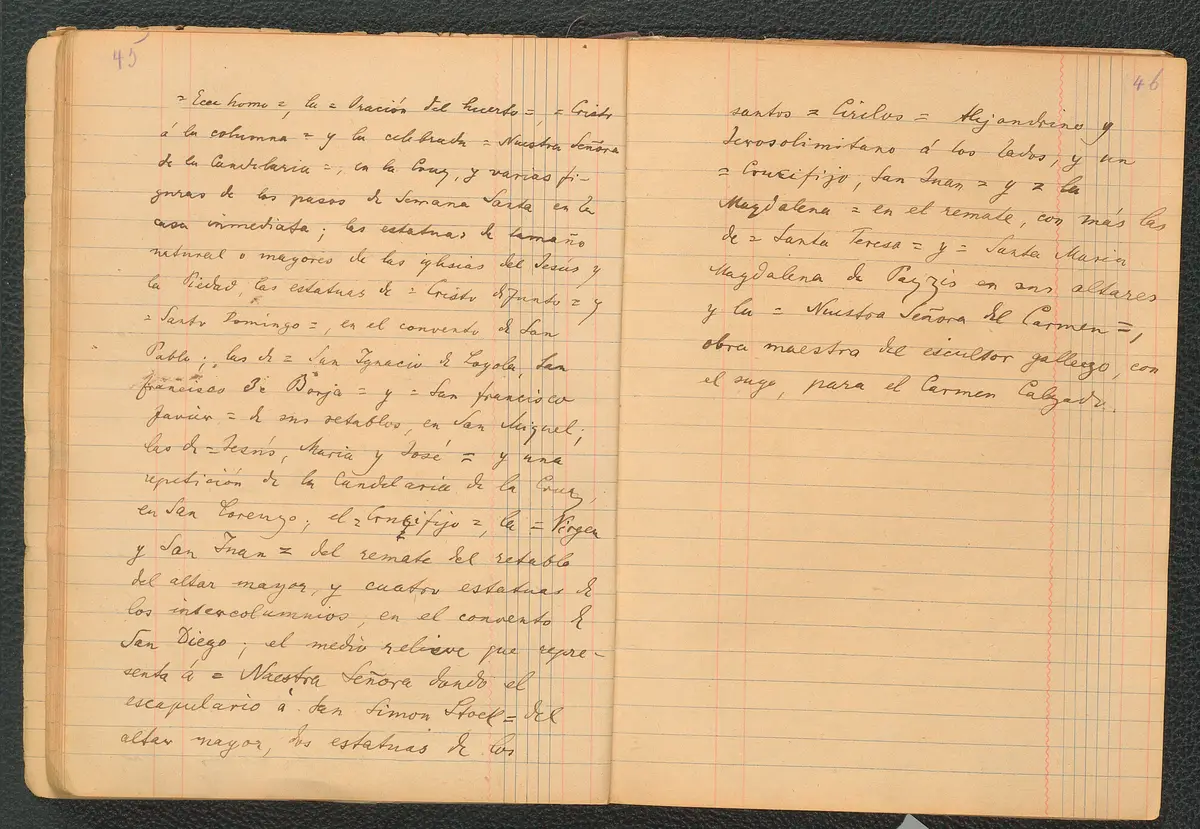 45
= Ecce homo =, la = Oración del huerto =, = Cristo
á la columna = y la celebrada = Nuestra Señora
de la Candelaria =, en la Cruz, y varias fi-
guras de los pasos de Semana Santa en la
casa inmediata; las estatuas de tamaño
natural o mayores de las iglesias del Jesús y
la Piedad, las estatuas de = Cristo difunto = y
= Santo Domingo =, en el convento de San
Pablo; las de = San Ignacio de Loyola, San
Francisco de Borja = y = San Francisco
Javier = de sus retablos, en San Miguel;
las de = Jesús, Maria y José = y una
repetición de la Candelaria de la Cruz,
en San Lorenzo; el = Crucifijo =, la = Virgen
y San Juan = del remate del retablo
del altar mayor, y cuatro estatuas de
los intercolumnios, en el convento de
San Diego; el medio relieve que repre-
senta á = Nuestra Señora dando el
escapulario á San Simon Stock = del
altar mayor, dos estatuas de los
46
santos = Cirilos = Alejandrino y
Jerosolimitano á los lados, y un
= Crucifijo, San Juan = y = la
Magdalena = en el remate, con más las
de = Santa Teresa = y = Santa Maria
Magdalena de Pazzis en sus altares
y la = Nuestra Señora del Carmen =,
obra maestra del escultor gallego, con
el suyo, para el Carmen Calzado.